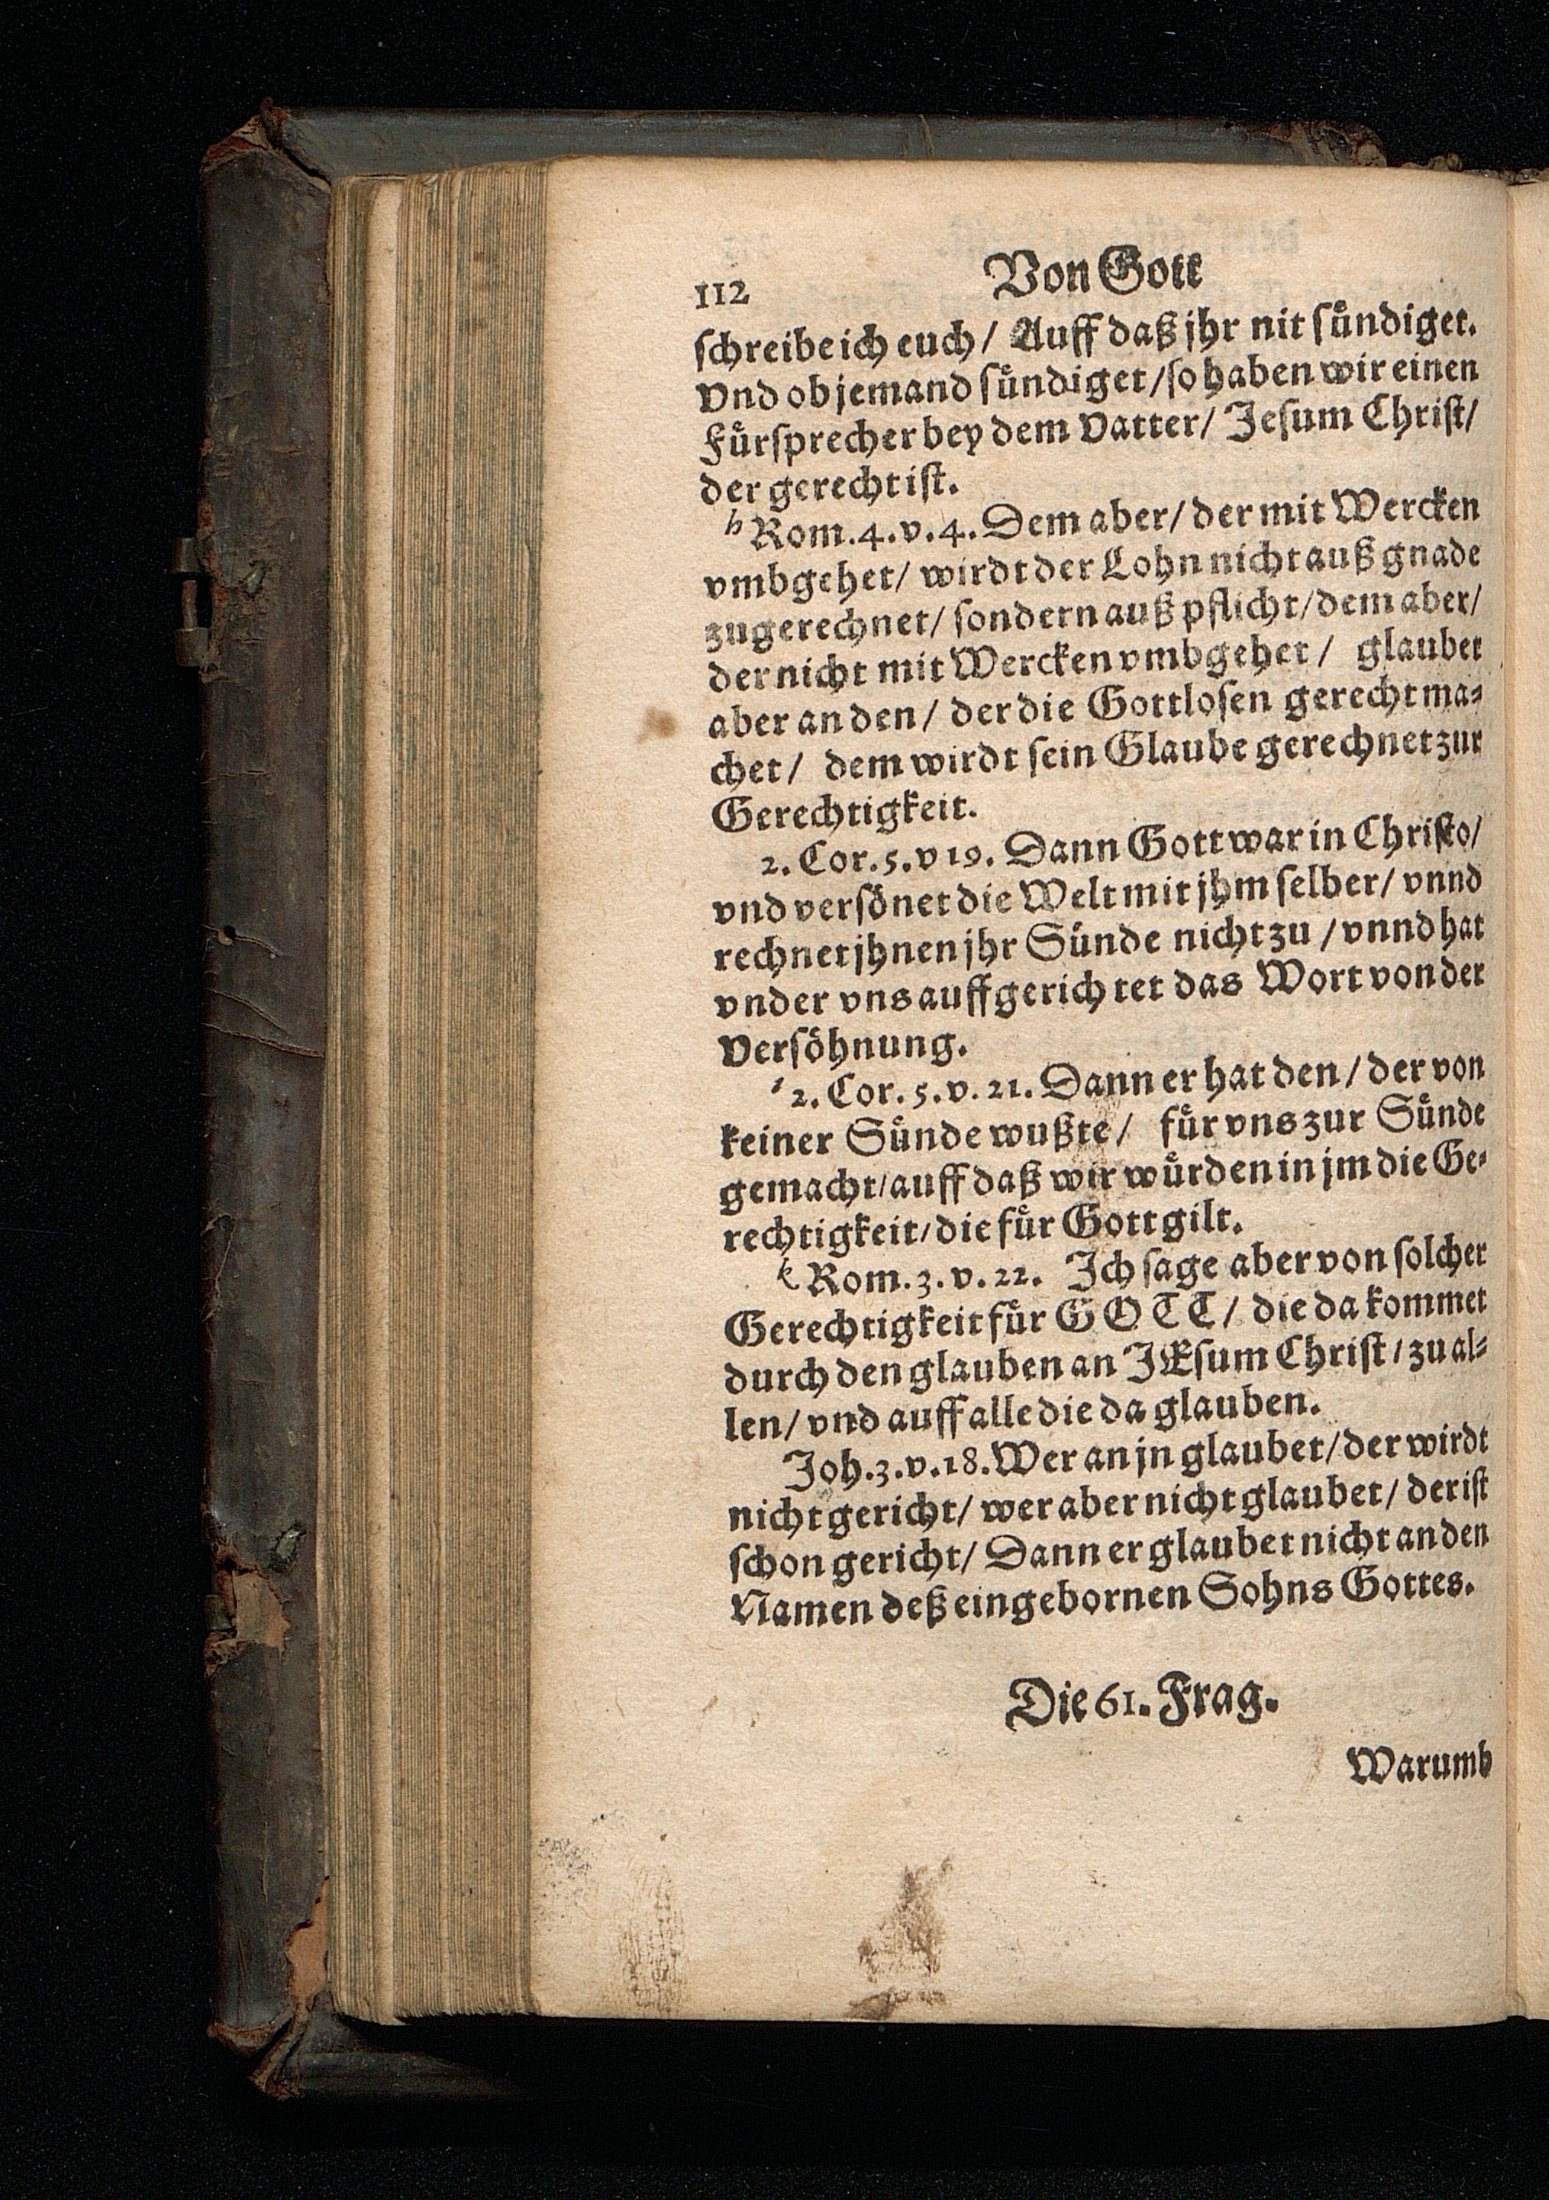 112 Von Gott
schreibe ich euch / Auff daß jhr nit sündiget.
Vnd ob jemand sündiget / so haben wir einen
Fürsprecher bey dem Vatter / Jesum Christ /
der gerecht ist.
h Rom. 4. v. 4. Dem aber / der mit Wercken
vmbgehet / wirdt der Lohn nicht auß gnade
zugerechnet / sondern auß pflicht / dem aber /
der nicht mit Wercken vmbgehet / glaubet
aber an den / der die Gottlosen gerecht ma⸗
chet / dem wirdt sein Glaube gerechnet zur
Gerechtigkeit.
2. Cor. 5. v 19. Dann Gott war in Christo /
vnd versönet die Welt mit jhm selber / vnnd
rechnet jhnen jhr Sünde nicht zu / vnnd hat
vnder vns auffgerichtet das Wort von der
Versöhnung.
i 2. Cor. 5. v. 21. Dann er hat den / der von
keiner Sünde wußte / für vns zur Sünde
gemacht / auff daß wir würden in jm die Ge⸗
rechtigkeit / die für Gott gilt.
k Rom. 3. v. 22. Ich sage aber von solcher
Gerechtigkeit für GOTT / die da kommet
durch den glauben an JEsum Christ / zu al⸗
len / vnd auff alle die da glauben.
Joh. 3. v. 18. Wer an jn glaubet / der wirdt
nicht gericht / wer aber nicht glaubet / der ist
schon gericht / Dann er glaubet nicht an den
Namen deß eingebornen Sohns Gottes.
Die 61. Frag.
Warumb